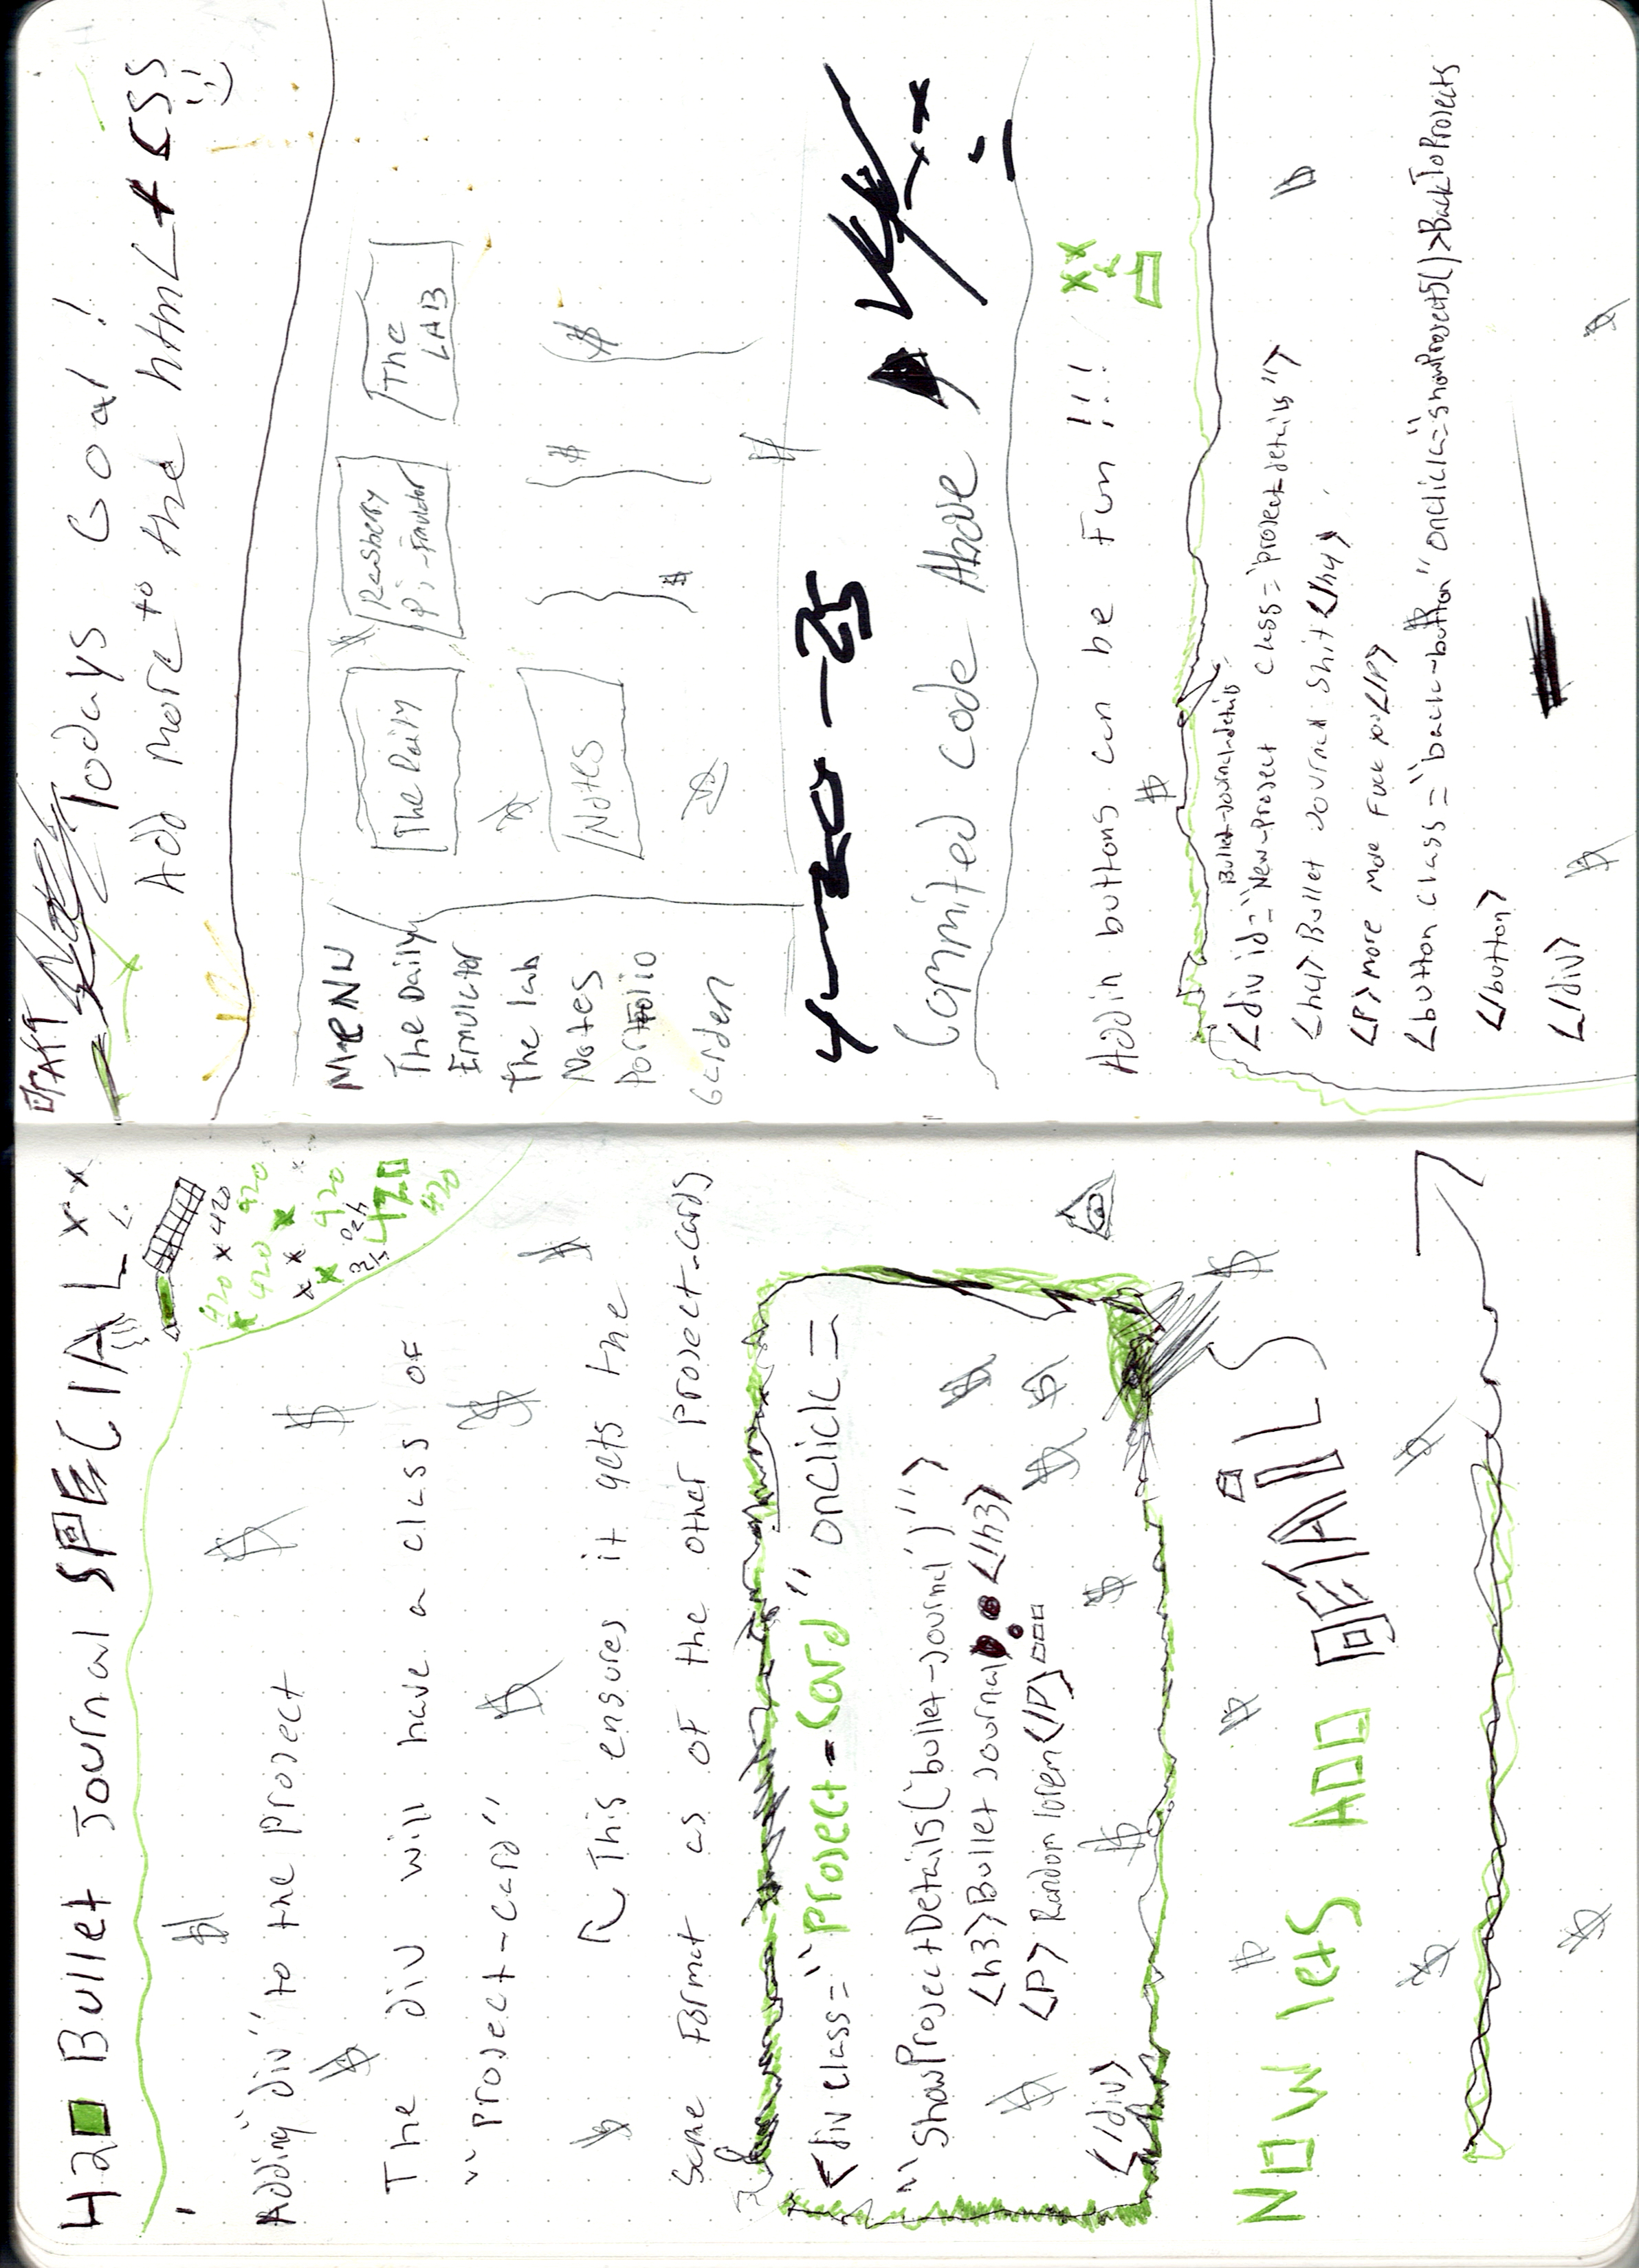 420 Bullet Journal SPECIAL xx
420 x 420
420 420
420
420
420
Adding "div" to the project
The div will have a class of
"project-card"
This ensures it gets the
same format as of the other project-cards
<div class="project-card" onclick=
"showProjectDetails('bullet-journal')">
<h3>Bullet Journal</h3>
<p> Random lorem</p>
</div>
NOW lets ADD DETAILS
DRAFT
Todays Goal!
Add more to the html + CSS
MENU
The Daily
Emulator
The lab
Notes
Portfolio
Garden
The Daily
Rasberry
Pi-Emulator
The
LAB
Notes
4-20-25
Commited Code Above
Addin buttons can be Fun !!!
Bullet-journal-details
<div id="New-Project class="project details">
<h4>Bullet Journal Shit</h4>
<p>more
<button class="back-button" onclick="showProjects()>BackToProjects
</button>
</div>